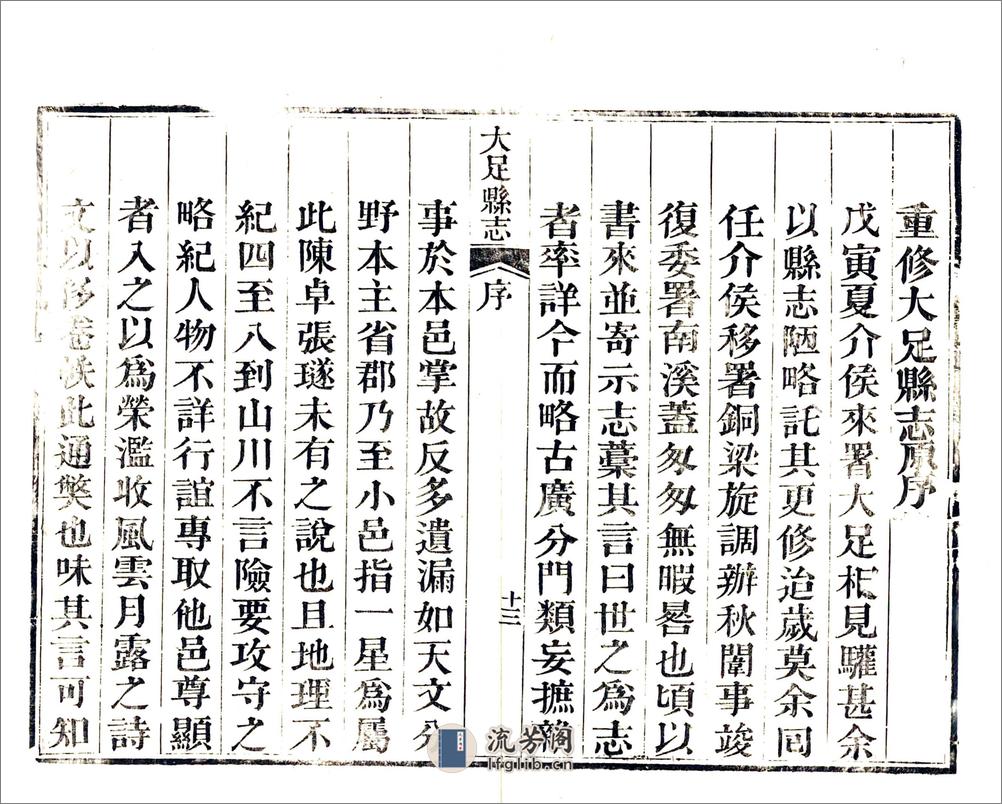 重修大足縣志原序
戊寅夏介侯來署大足相見驩甚余
以縣志陋略託其更修治歲莫余回
任介侯移署銅梁旋調辦秋闈事竣
復委署南溪蓋匆匆無暇晷也頃以
書來並寄示志藁其言曰世之為志
者率詳今而略古廣分門類妄摭雜
大足縣志
序
十三
事於本邑掌故反多遺漏如天文分
野本主省郡乃至小邑指一星為屬
此陳卓張璲未有之說也且地理不
紀四至八到山川不言險要攻守之
略紀人物不詳行誼專取他邑尊顯
者入之以為榮濫收風雲月露之詩
文以侈卷帙此通獘也味其言可知
流芳閣
lfglib.cn